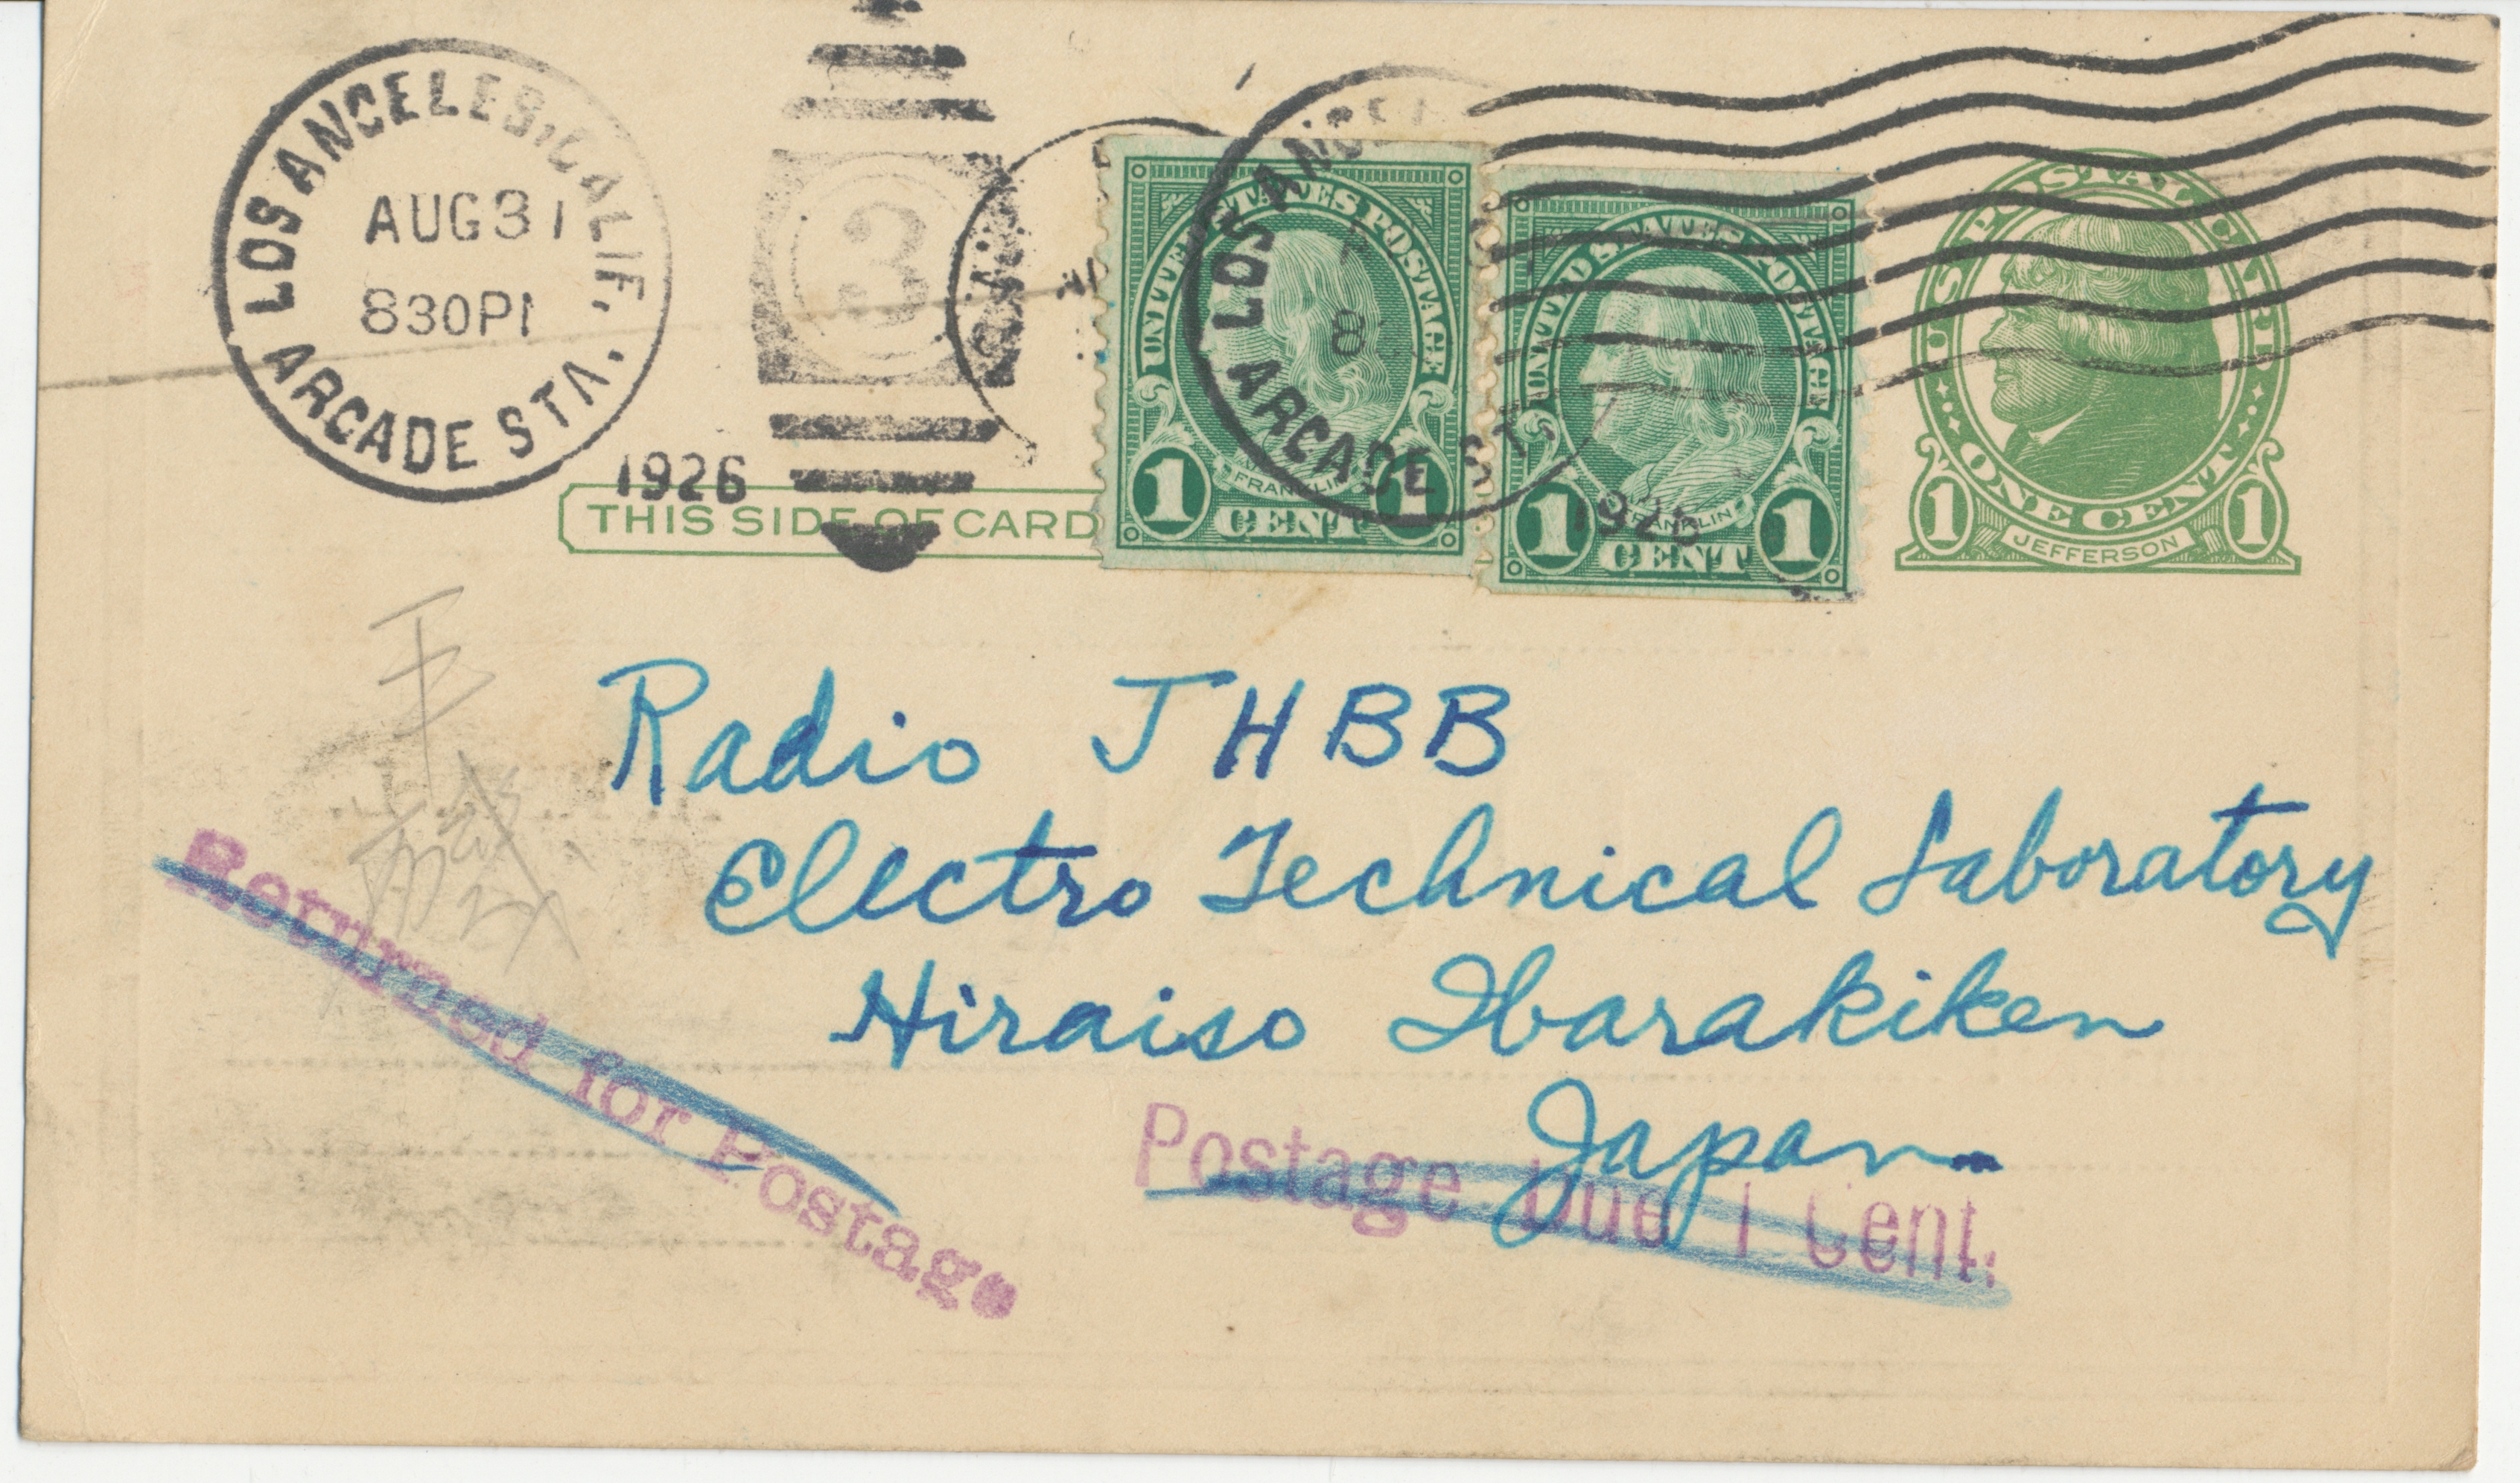 LOS ANGELES, CALIF.
AUG 31
830 P
ARCADE STA.
1926
3
LOS ANGEL
8
ARCADE ST
192
UNITED STATES POSTAGE
FRANKLIN
1 CENT 1
UNITED STATES POSTAGE
FRANKLIN
1 CENT 1
U.S. POSTAL CARD
ONE CENT
1 JEFFERSON 1
THIS SIDE OF CARD
Radio JHBB
Electro Technical Laboratory
Hiraiso Ibarakiken
Japan
Returned for Postage
Postage Due 1 Cent.